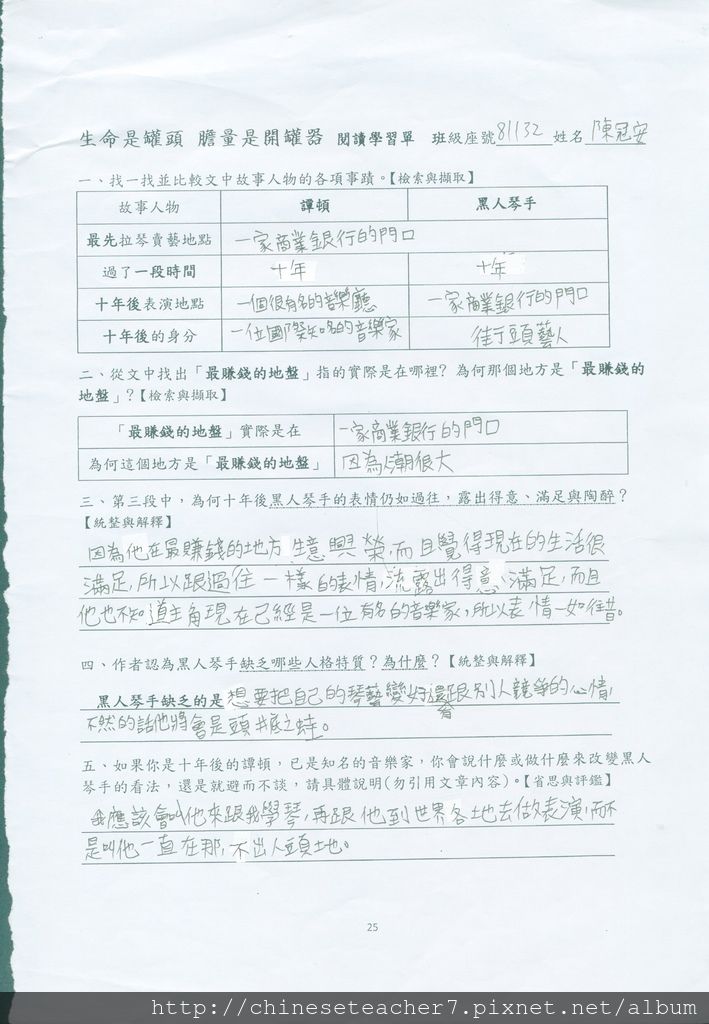 生命是罐頭 膽量是開罐器 閱讀學習單 班級座號81132 姓名陳冠安
一、找一找並比較文中故事人物的各項事蹟。【檢索與擷取】
故事人物 譚頓 黑人琴手
最先拉琴賣藝地點 一家商業銀行的門口
過了一段時間 十年 十年
十年後表演地點 一個很有名的音樂廳 一家商業銀行的門口
十年後的身分 一位國際知名的音樂家 街頭藝人
二、從文中找出「最賺錢的地盤」指的實際是在哪裡?為何那個地方是「最賺錢的
地盤」?【檢索與擷取】
「最賺錢的地盤」實際是在 一家商業銀行的門口
為何這個地方是「最賺錢的地盤」 因為人潮很大
三、第三段中,為何十年後黑人琴手的表情仍如過往,露出得意、滿足與陶醉?
【統整與解釋】
因為他在最賺錢的地方生意興榮,而且覺得現在的生活很
滿足,所以跟過往一樣的表情,流露出得意、滿足,而且
他也不知道主角現在已經是一位有名的音樂家,所以表情一如往昔。
四、作者認為黑人琴手缺乏哪些人格特質?為什麼?【統整與解釋】
黑人琴手缺乏的是想要把自己的琴藝變好還有跟別人競爭的心情,
不然的話他將會是頭井底之蛙。
五、如果你是十年後的譚頓,已是知名的音樂家,你會說什麼或做什麼來改變黑人
琴手的看法,還是就避而不談,請具體說明(勿引用文章內容)。【省思與評鑑】
我應該會叫他來跟我學琴,再跟他到世界各地去做表演,而不
是叫他一直在那,不出人頭地。
25
http://chineseteacher7.pixnet.net/album